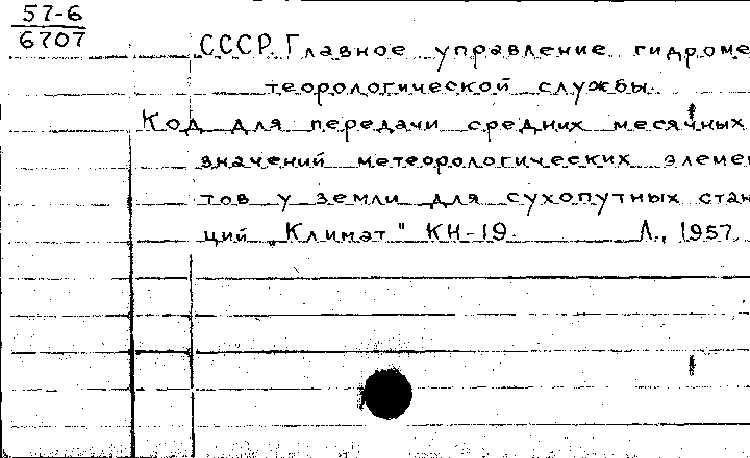 57-6
6707
СССР. Главное управление гидроме
теорологической службы.
Код для передачи средних месячных
значений метеорологических элемен
тов у земли для сухопутных стан
ций „Климат" КН-19. Л., 1957.